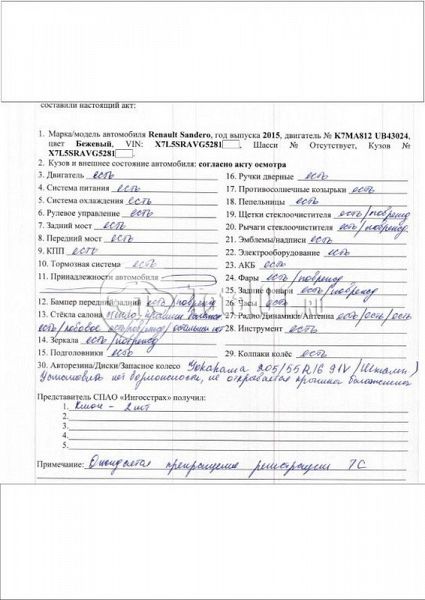 составили настоящий акт:
1. Марка/модель автомобиля Renault Sandero, год выпуска 2015, двигатель № K7MA812 UB43024,
цвет Бежевый, VIN: X7L5SRAVG5281, Шасси № Отсутствует, Кузов №
X7L5SRAVG5281.
2. Кузов и внешнее состояние автомобиля: согласно акту осмотра
3. Двигатель есть
4. Система питания есть
5. Система охлаждения есть
6. Рулевое управление есть
7. Задний мост есть
8. Передний мост есть
9. КПП есть
10. Тормозная система есть
11. Принадлежности автомобиля
12. Бампер передний/задний есть/поврежд
13. Стёкла салона
есть/лобовое есть
14. Зеркала есть/поврежд
15. Подголовники есть
16. Ручки дверные есть
17. Противосолнечные козырьки есть
18. Пепельницы есть
19. Щетки стеклоочистителя есть/поврежд
20. Рычаги стеклоочистителя есть/поврежд
21. Эмблемы/надписи есть
22. Электрооборудование есть
23. АКБ есть
24. Фары есть/поврежд
25. Задние фонари есть/поврежд
26. Часы есть
27. Радио/Динамики/Антенна есть/есть/есть
28. Инструмент есть
29. Колпаки колёс есть
30. Авторезина/Диски/Запасное колесо 205/55 R16 91V
нет не открывается крышка багажника
Представитель СПАО «Ингосстрах» получил:
1. Ключ - 2шт
2.
3.
4.
5.
Примечание: Ожидается прекращение регистрации ТС